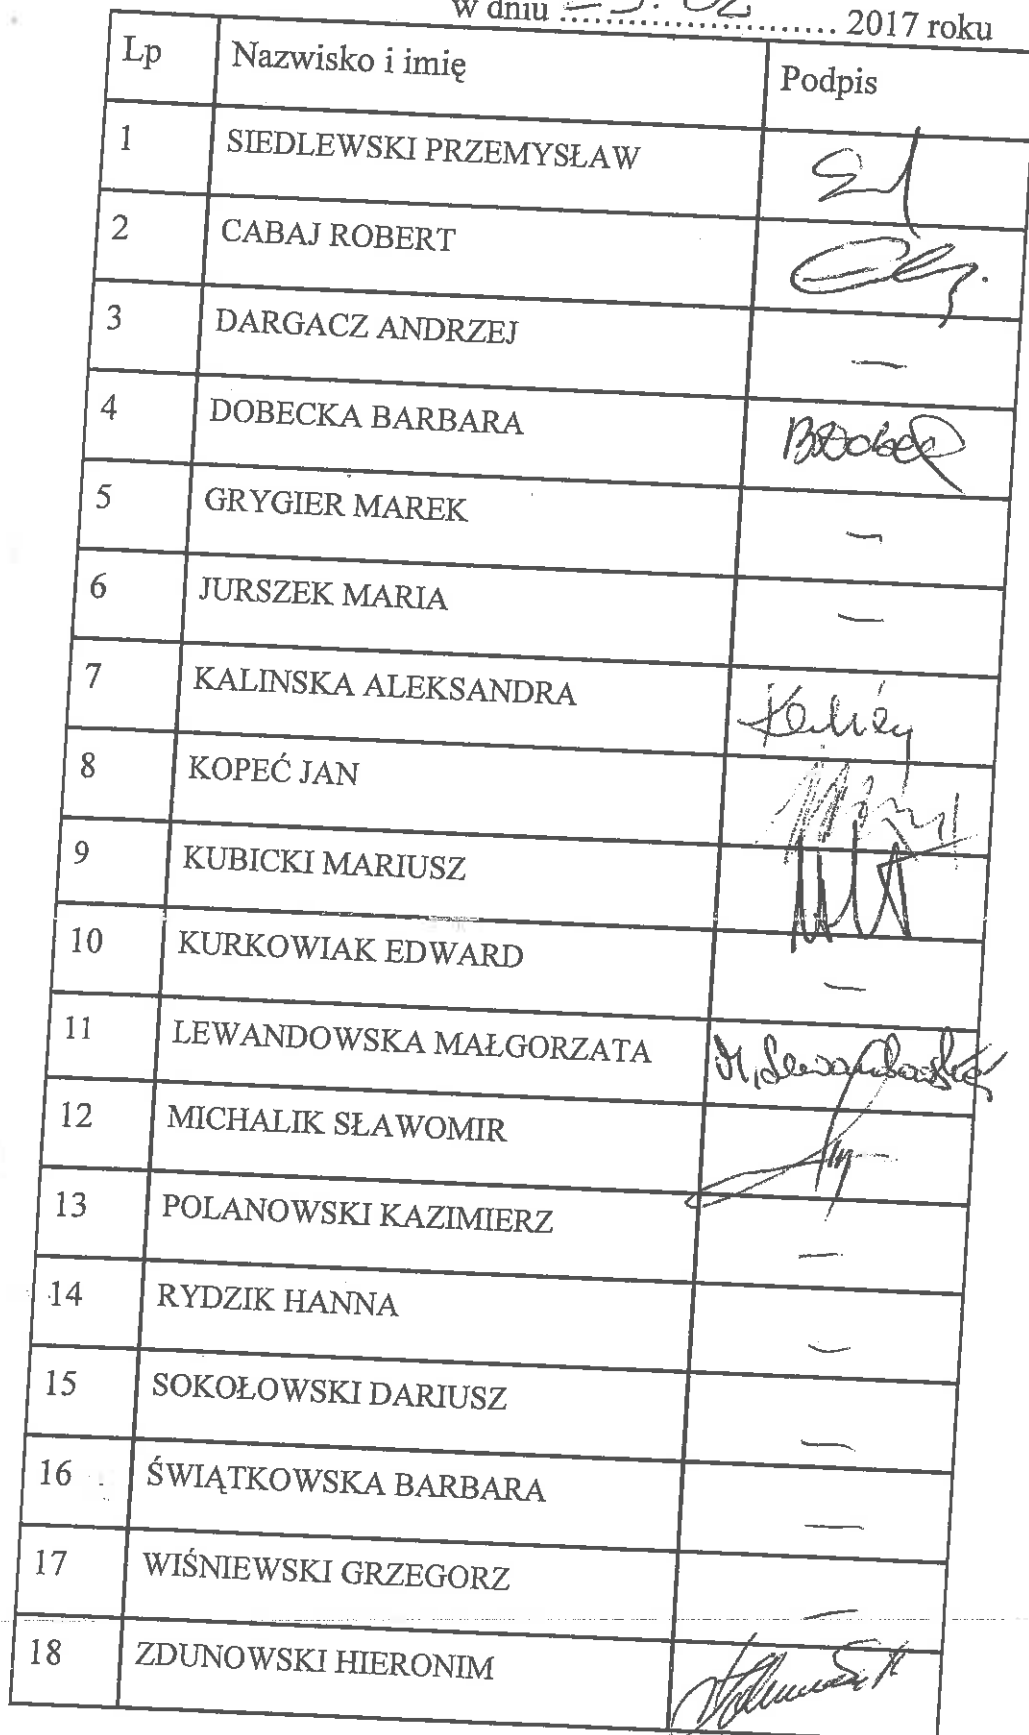 w dniu ........................ 2017 roku
Lp Nazwisko i imię Podpis
1 SIEDLEWSKI PRZEMYSŁAW
2 CABAJ ROBERT
3 DARGACZ ANDRZEJ —
4 DOBECKA BARBARA
5 GRYGIER MAREK —
6 JURSZEK MARIA —
7 KALINSKA ALEKSANDRA
8 KOPEĆ JAN
9 KUBICKI MARIUSZ
10 KURKOWIAK EDWARD —
11 LEWANDOWSKA MAŁGORZATA M. Lewandowska
12 MICHALIK SŁAWOMIR
13 POLANOWSKI KAZIMIERZ —
14 RYDZIK HANNA —
15 SOKOŁOWSKI DARIUSZ —
16 ŚWIĄTKOWSKA BARBARA —
17 WIŚNIEWSKI GRZEGORZ —
18 ZDUNOWSKI HIERONIM